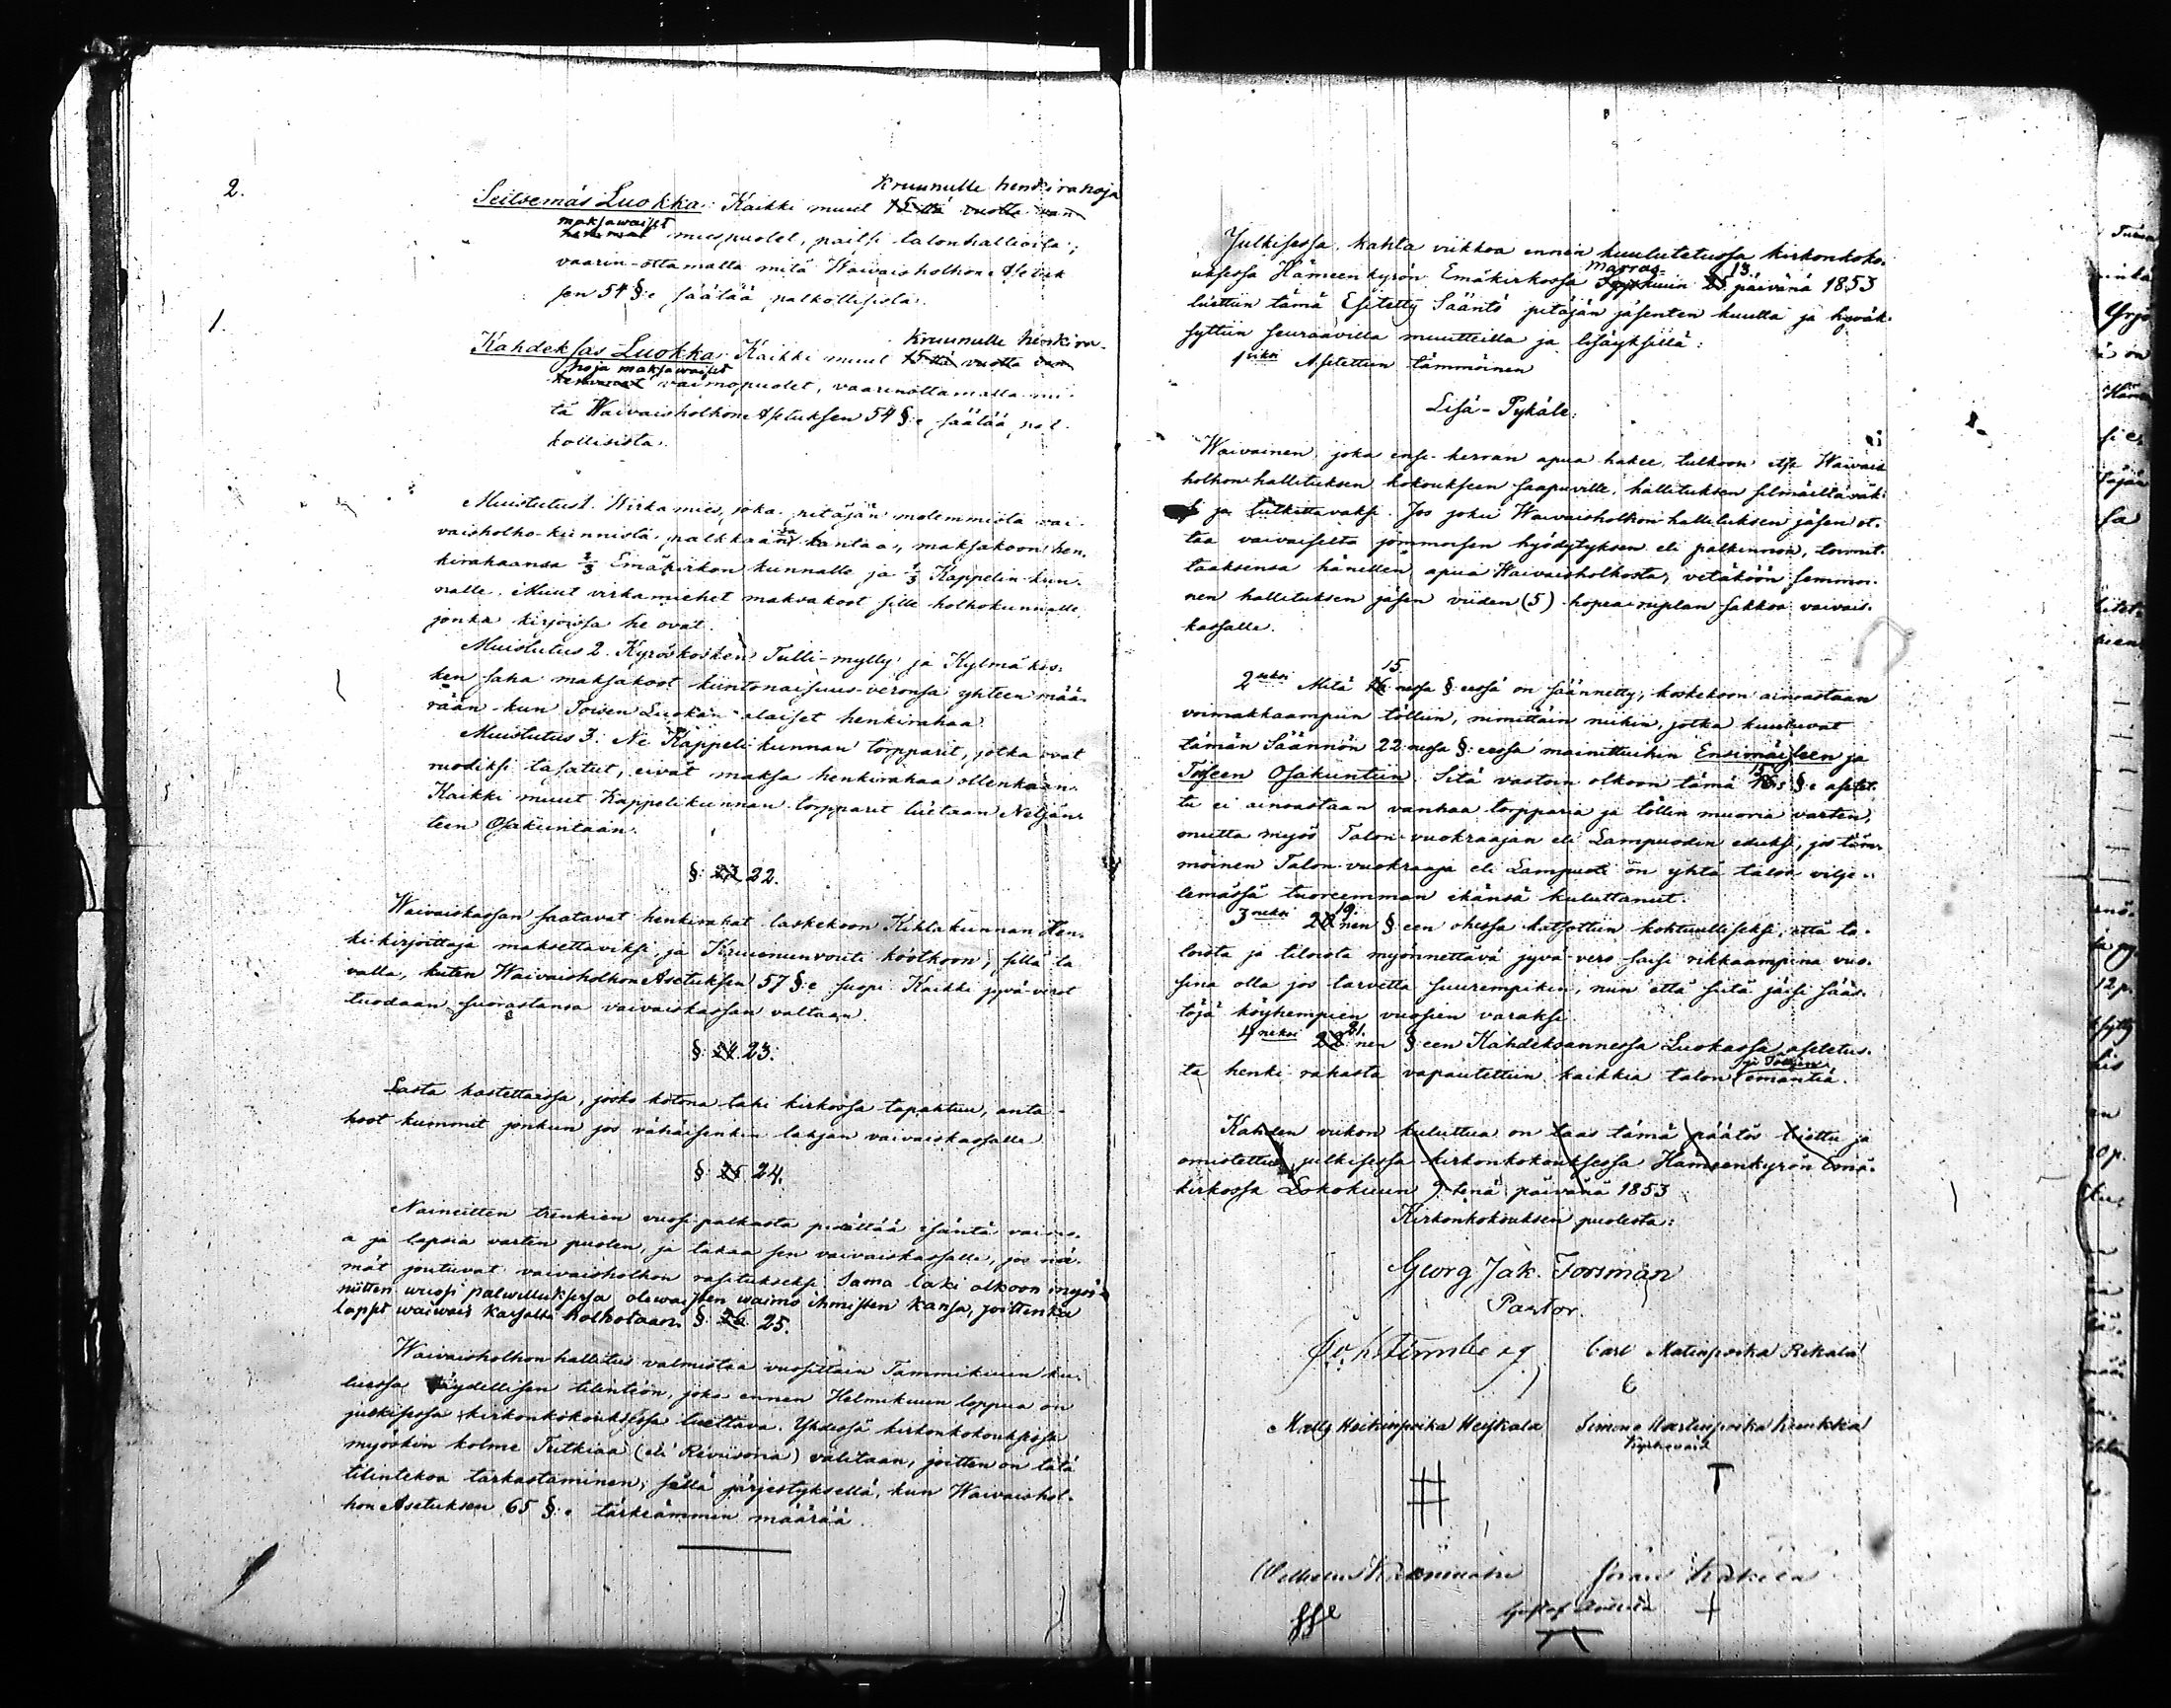 2.
Kruunulle henkirahoja
Seitsemäs Luokka: Kaikki muut 15 ttä vuotta van
maksawaiset
miespuolet, paitsi talonhallioita;
vaarin-ottamatta mitä Waivaisholhon Asetuk
sen 54 §:e säätää palkollisista.
1.
Kruunulle henkira-
Kahdeksas Luokka: Kaikki muut 15 ttä vuotta van
hoja maksawaiset
vaimopuolet, vaarinottamatta mi-
tä Waivaisholhon Asetuksen 54 §:e säätää pal-
kollisista.
Muistutus 1. Wirkamies, joka pitäjän molemmista vai-
vaisholho-kunnista palkkaansa kantaa, maksakoon hen-
kirahaansa 2/3 Emäkirkon kunnalle ja 1/3 Kappelin kun-
nalle. Muut virkamiehet maksakoot sille holhokunnalle
jonka kirjoissa he ovat.
Muistutus 2. Kyröskosken Tulli-mylly ja Kylmäkos-
ken saha maksakoot kuntonaisuus-veronsa yhteen mää-
rään kun Toisen Luokan alaiset henkirahaa.
Muistutus 3. Ne Kappelikunnan torpparit, jotka ovat
ruodiksi tasatut, eivät maksa henkirahaa ollenkaan.
Kaikki muut Kappelikunnan torpparit luetaan Neljän-
teen Osakuntaan.
§: 23 22.
Waivaiskassan saatavat henkirahat laskekoon Kihlakunnan Hen-
kikirjoittaja maksettaviksi ja Kruununvouti koothoon, sillä ta
valla, kuten Waivaisholhon Asetuksen 57 §:e suopi. Kaikki jyvä-verot
tuodaan suorastansa vaivaiskassan valtaan.
§: 24 23.
Lasta kastettaissa, josko kotona tahi kirkossa tapahtuu, anta-
koot kummit jonkun jos vähäisenkin lahjan vaivaiskassalle.
§: 25 24.
Naineitten trenkien vuosi-palkasta pidättää isäntä vaimo-
a ja lapsia varten puolen, ja takaa sen vaivaiskassalle, jos nä-
mät joutuvat vaivaisholhon rasitukseksi. Sama laki olkoon myös
niitten wuosi palwelluksessa olewaisten waimo ihmisten kansa, joittenka
lapset waiwais kassalta holhotaan. §: 26 25.
Waivaisholhon hallitus valmistaa vuosittain Tammikuun ku-
luessa täydellisen tilinteon, joka ennen Helmikuun loppua on
julkisessa kirkonkokouksessa luettava. Yhdessä kirkonkokouksessa
myöskin kolme Tutkiaa (eli Revisoria) valitaan, joitten on tätä
tilintekoa tarkastaminen, sillä järjestyksellä, kun Waivaishol-
hon Asetuksen 65 §:e tärkeämmin määrää.
Julkisessa, kahta viikkoa ennen kuulutetussa kirkonkoko-
uksessa Hämeenkyrön Emäkirkossa Marras-kuun 13. päivänä 1853
luettiin tämä Esitetty Sääntö pitäjän jäsenten kuulla ja hyväk-
syttiin seuraavilla muutteilla ja lisäyksillä:
1siksi Asetettiin tämmöinen
Lisä-Pykäle:
Waivainen, joka ensi-kerran apua hakee, tulkoon itse Waivais
holhon hallituksen kokoukseen saapuville, hallituksen silmäiltäväk-
si ja tutkittavaksi. Jos joku Waivaisholhon hallituksen jäsen ot-
taa vaivaiselta jommoisen hyödytyksen eli palkinnon, toimit-
taaksensa hänellen apua Waivaisholhosta, vetäköön semmoi-
nen hallituksen jäsen viiden (5) hopea ruplan sakkoa vaivais-
kassalle.
2seksi Mitä 15 nessa §:eessä on säännetty, koskekoon ainoastaan
voimakkaampiin tölliin, nimittäin niihin, jotka kuuluvat
tämän Säännön 22:nessa §:eessa mainittuihin Ensimäiseen ja
Toiseen Osakuntiin. Sitä vastoin olkoon tämä 15 §:e asetet-
tu ei ainoastaan vanhaa torpparia ja töllin muoria varten,
mutta myös Talon-vuokraajan eli Lampuodin eduksi, jos täm-
möinen Talon-vuokraaja eli Lampuoti on yhtä taloa vilje-
lemässä tuoreemman ikänsä kuluttanut.
3neksi 19 nen §:een ohessa katsottiin kohtuulliseksi, että ta-
loista ja tiloista myönnettävä jyvä-vero saisi rikkaampina vuo-
sina olla jos tarvetta suurempikin, niin että siitä jäisi sääs-
töjä köyhempien vuosien varaksi.
4neksi 21. nen §:een Kahdeksannessa Luokassa asetetus-
ta henki-rahasta vapautettiin kaikkia talon ja Töllin emäntiä.
Kahden viikon kuluttua on taas tämä päätös luettu ja
omistettu julkisessa kirkonkokouksessa Hämeenkyrön Emä-
kirkossa Lokakuun 9-tenä päivänä 1853
Kirkonkokouksen puolesta:
Georg Jak. Forsman
Pastor.
Carl Matinpoika Rekala
Matts Heikinpoika Heiskala
Simuna Martinpoika Kunkka
Kyrkovärd